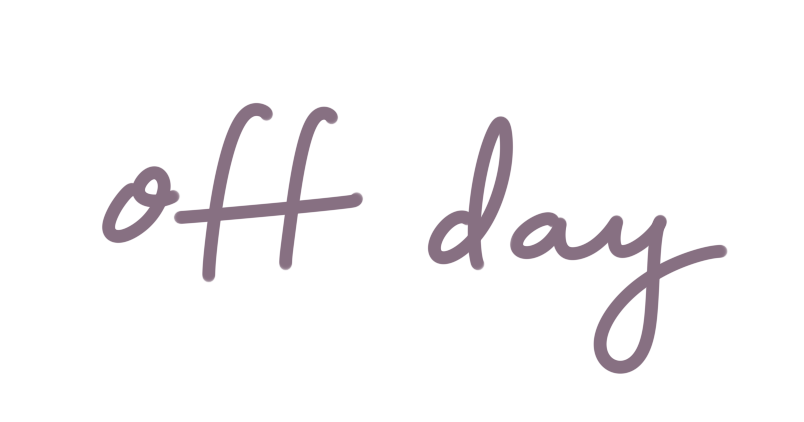 off day